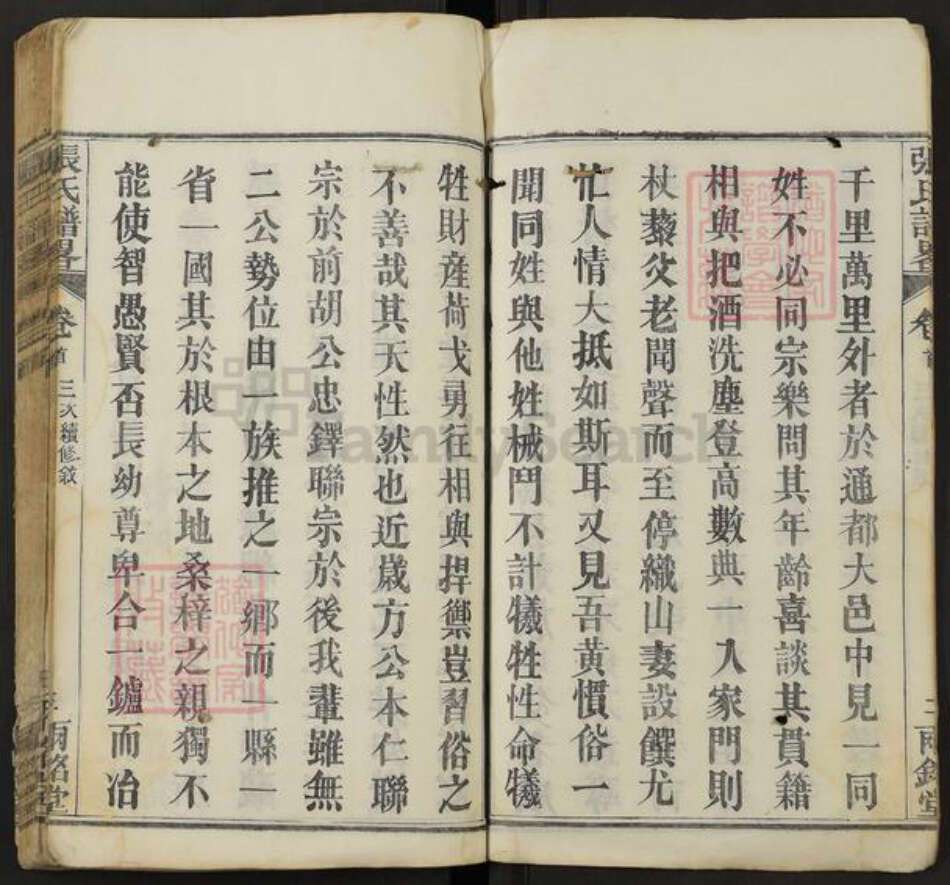 千里萬里外者於通都大邑中見一同
姓不必同宗樂問其年齡喜談其貫籍
相與把酒洗塵登高數典一入家門則
杖藜父老聞聲而至停織山妻設饌尤
忙人情大抵如斯耳又見吾黃慣俗一
聞同姓與他姓械鬥不計犧牲性命犧
牲財產荷戈勇往相與捍禦豈習俗之
不善哉其天性然也近歲方公本仁聯
宗於前胡公忠鐸聯宗於後我輩雖無
二公勢位由一族推之一鄉而一縣一
省一國其於根本之地桑梓之親獨不
能使智愚賢否長幼尊卑合一鑪而冶
張氏譜畧
卷首
三次續修敘
兩銘堂
張氏譜畧
卷首
兩銘堂
FamilySearch